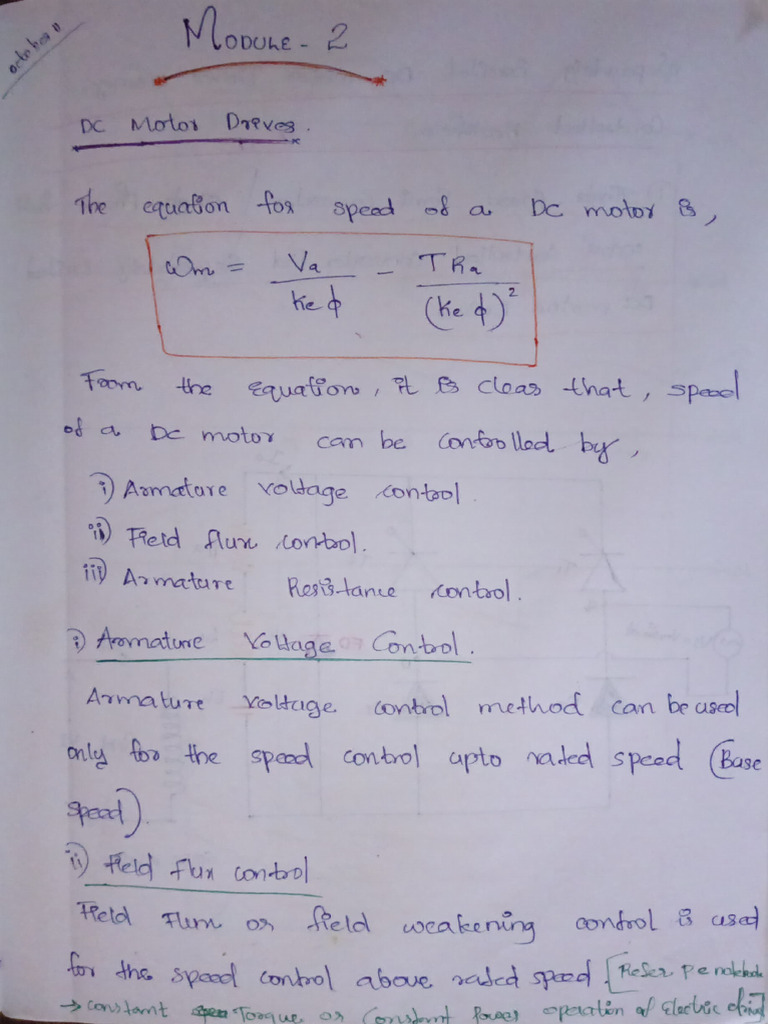 october
MODULE - 2
DC Motor Drives.
The equation for speed of a DC motor is,
ωm = Va / Ke ϕ − T Ra / (Ke ϕ)²
From the equation, it is clear that, speed
of a DC motor can be controlled by,
i) Armature voltage control
ii) Field flux control.
iii) Armature Resistance control.
i) Armature Voltage Control.
Armature voltage control method can be used
only for the speed control upto rated speed (Base
speed).
ii) Field flux control
Field Flux or field weakening control is used
for the speed control above rated speed [Refer pe notebook
→ constant Torque or Constant power operation of Electric drive]